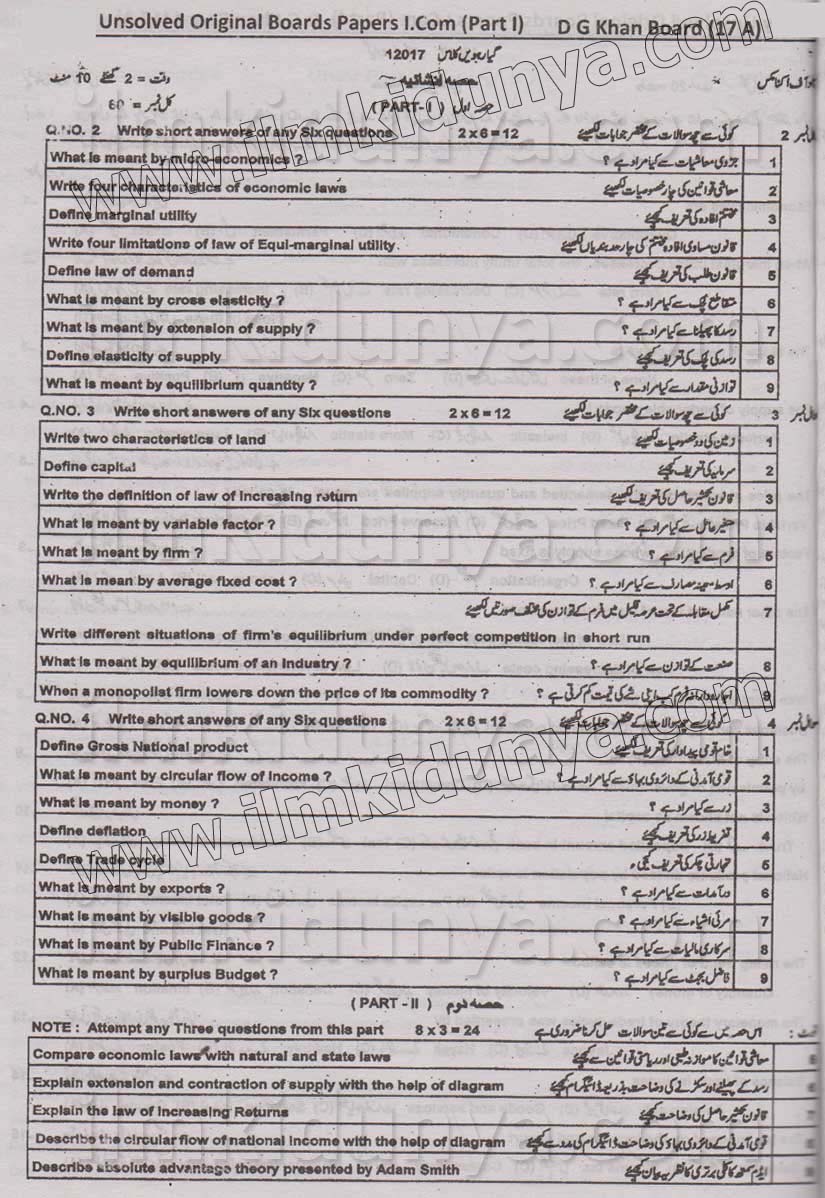 Unsolved Original Boards Papers I.Com (Part I) D G Khan Board (17 A)
12017 گیارہویں کلاس
وقت = 2 گھنٹے 10 منٹ حصہ انشائیہ
کل نمبر = 60 (PART-I) حصہ اول
Q.NO. 2 Write short answers of any Six questions 2 x 6 = 12 کوئی سے چھ سوالات کے مختصر جوابات لکھیئے 2
What is meant by micro-economics ? جزوی معاشیات سے کیا مراد ہے ؟ 1
Write four characteristics of economic laws معاشی قوانین کی چار خصوصیات لکھیئے 2
Define marginal utility مختتم افادہ کی تعریف کیجئے 3
Write four limitations of law of Equi-marginal utility. قانون مساوی افادہ مختتم کی چار حد بندیاں لکھیئے 4
Define law of demand قانون طلب کی تعریف کیجئے 5
What is meant by cross elasticity ? متقاطع لچک سے کیا مراد ہے ؟ 6
What is meant by extension of supply ? رسد کا پھیلنا سے کیا مراد ہے ؟ 7
Define elasticity of supply رسد کی لچک کی تعریف کیجئے 8
What is meant by equilibrium quantity ? توازنی مقدار سے کیا مراد ہے ؟ 9
Q.NO. 3 Write short answers of any Six questions 2 x 6 = 12 کوئی سے چھ سوالات کے مختصر جوابات لکھیئے 3
Write two characteristics of land زمین کی دو خصوصیات لکھیئے 1
Define capital سرمایہ کی تعریف کیجئے 2
Write the definition of law of increasing return قانون تکثیر حاصل کی تعریف لکھیئے 3
What is meant by variable factor ? متغیر عامل سے کیا مراد ہے ؟ 4
What is meant by firm ? فرم سے کیا مراد ہے ؟ 5
What is mean by average fixed cost ? اوسط معینہ مصارف سے کیا مراد ہے ؟ 6
مکمل مقابلہ کے تحت عرصہ قلیل میں فرم کے توازن کی مختلف صورتیں لکھیئے 7
Write different situations of firm's equilibrium under perfect competition in short run
What is meant by equilibrium of an Industry ? صنعت کے توازن سے کیا مراد ہے ؟ 8
When a monopolist firm lowers down the price of its commodity ? اجارہ دارانہ فرم کب اپنی شے کی قیمت کم کرتی ہے ؟ 9
Q.NO. 4 Write short answers of any Six questions 2 x 6 = 12 کوئی سے چھ سوالات کے مختصر جوابات لکھیئے سوال نمبر 4
Define Gross National product خام قومی پیداوار کی تعریف لکھیئے 1
What is meant by circular flow of Income ? قومی آمدنی کے دائروی بہاؤ سے کیا مراد ہے ؟ 2
What is meant by money ? زر سے کیا مراد ہے ؟ 3
Define deflation تفریط زر کی تعریف کیجئے 4
Define Trade cycle تجارتی چکر کی تعریف کیجئے 5
What is meant by exports ? درآمدات سے کیا مراد ہے ؟ 6
What is meant by visible goods ? مرئی اشیاء سے کیا مراد ہے ؟ 7
What is meant by Public Finance ? سرکاری مالیات سے کیا مراد ہے ؟ 8
What is meant by surplus Budget ? فاضل بجٹ سے کیا مراد ہے ؟ 9
(PART - II) حصہ دوم
NOTE : Attempt any Three questions from this part 8 x 3 = 24 اس حصہ میں سے کوئی سے تین سوالات حل کرنا ضروری ہے
Compare economic laws with natural and state laws معاشی قوانین کا موازنہ طبعی اور ریاستی قوانین سے کیجئے 5
Explain extension and contraction of supply with the help of diagram رسد کے پھیلنے اور سکڑنے کی وضاحت بذریعہ ڈائیگرام کیجئے 6
Explain the law of Increasing Returns قانون تکثیر حاصل کی وضاحت کیجئے 7
Describe the circular flow of national income with the help of diagram قومی آمدنی کے دائروی بہاؤ کی وضاحت ڈائیگرام کی مدد سے کیجئے
Describe absolute advantage theory presented by Adam Smith ایڈم سمتھ کا کلی برتری کا نظریہ بیان کیجئے
www.ilmkidunya.com
www.ilmkidunya.com
ilmkidunya.com
ilmkidunya.com
ilmkidunya.com
ilmkidunya.com
ilmkidunya.com